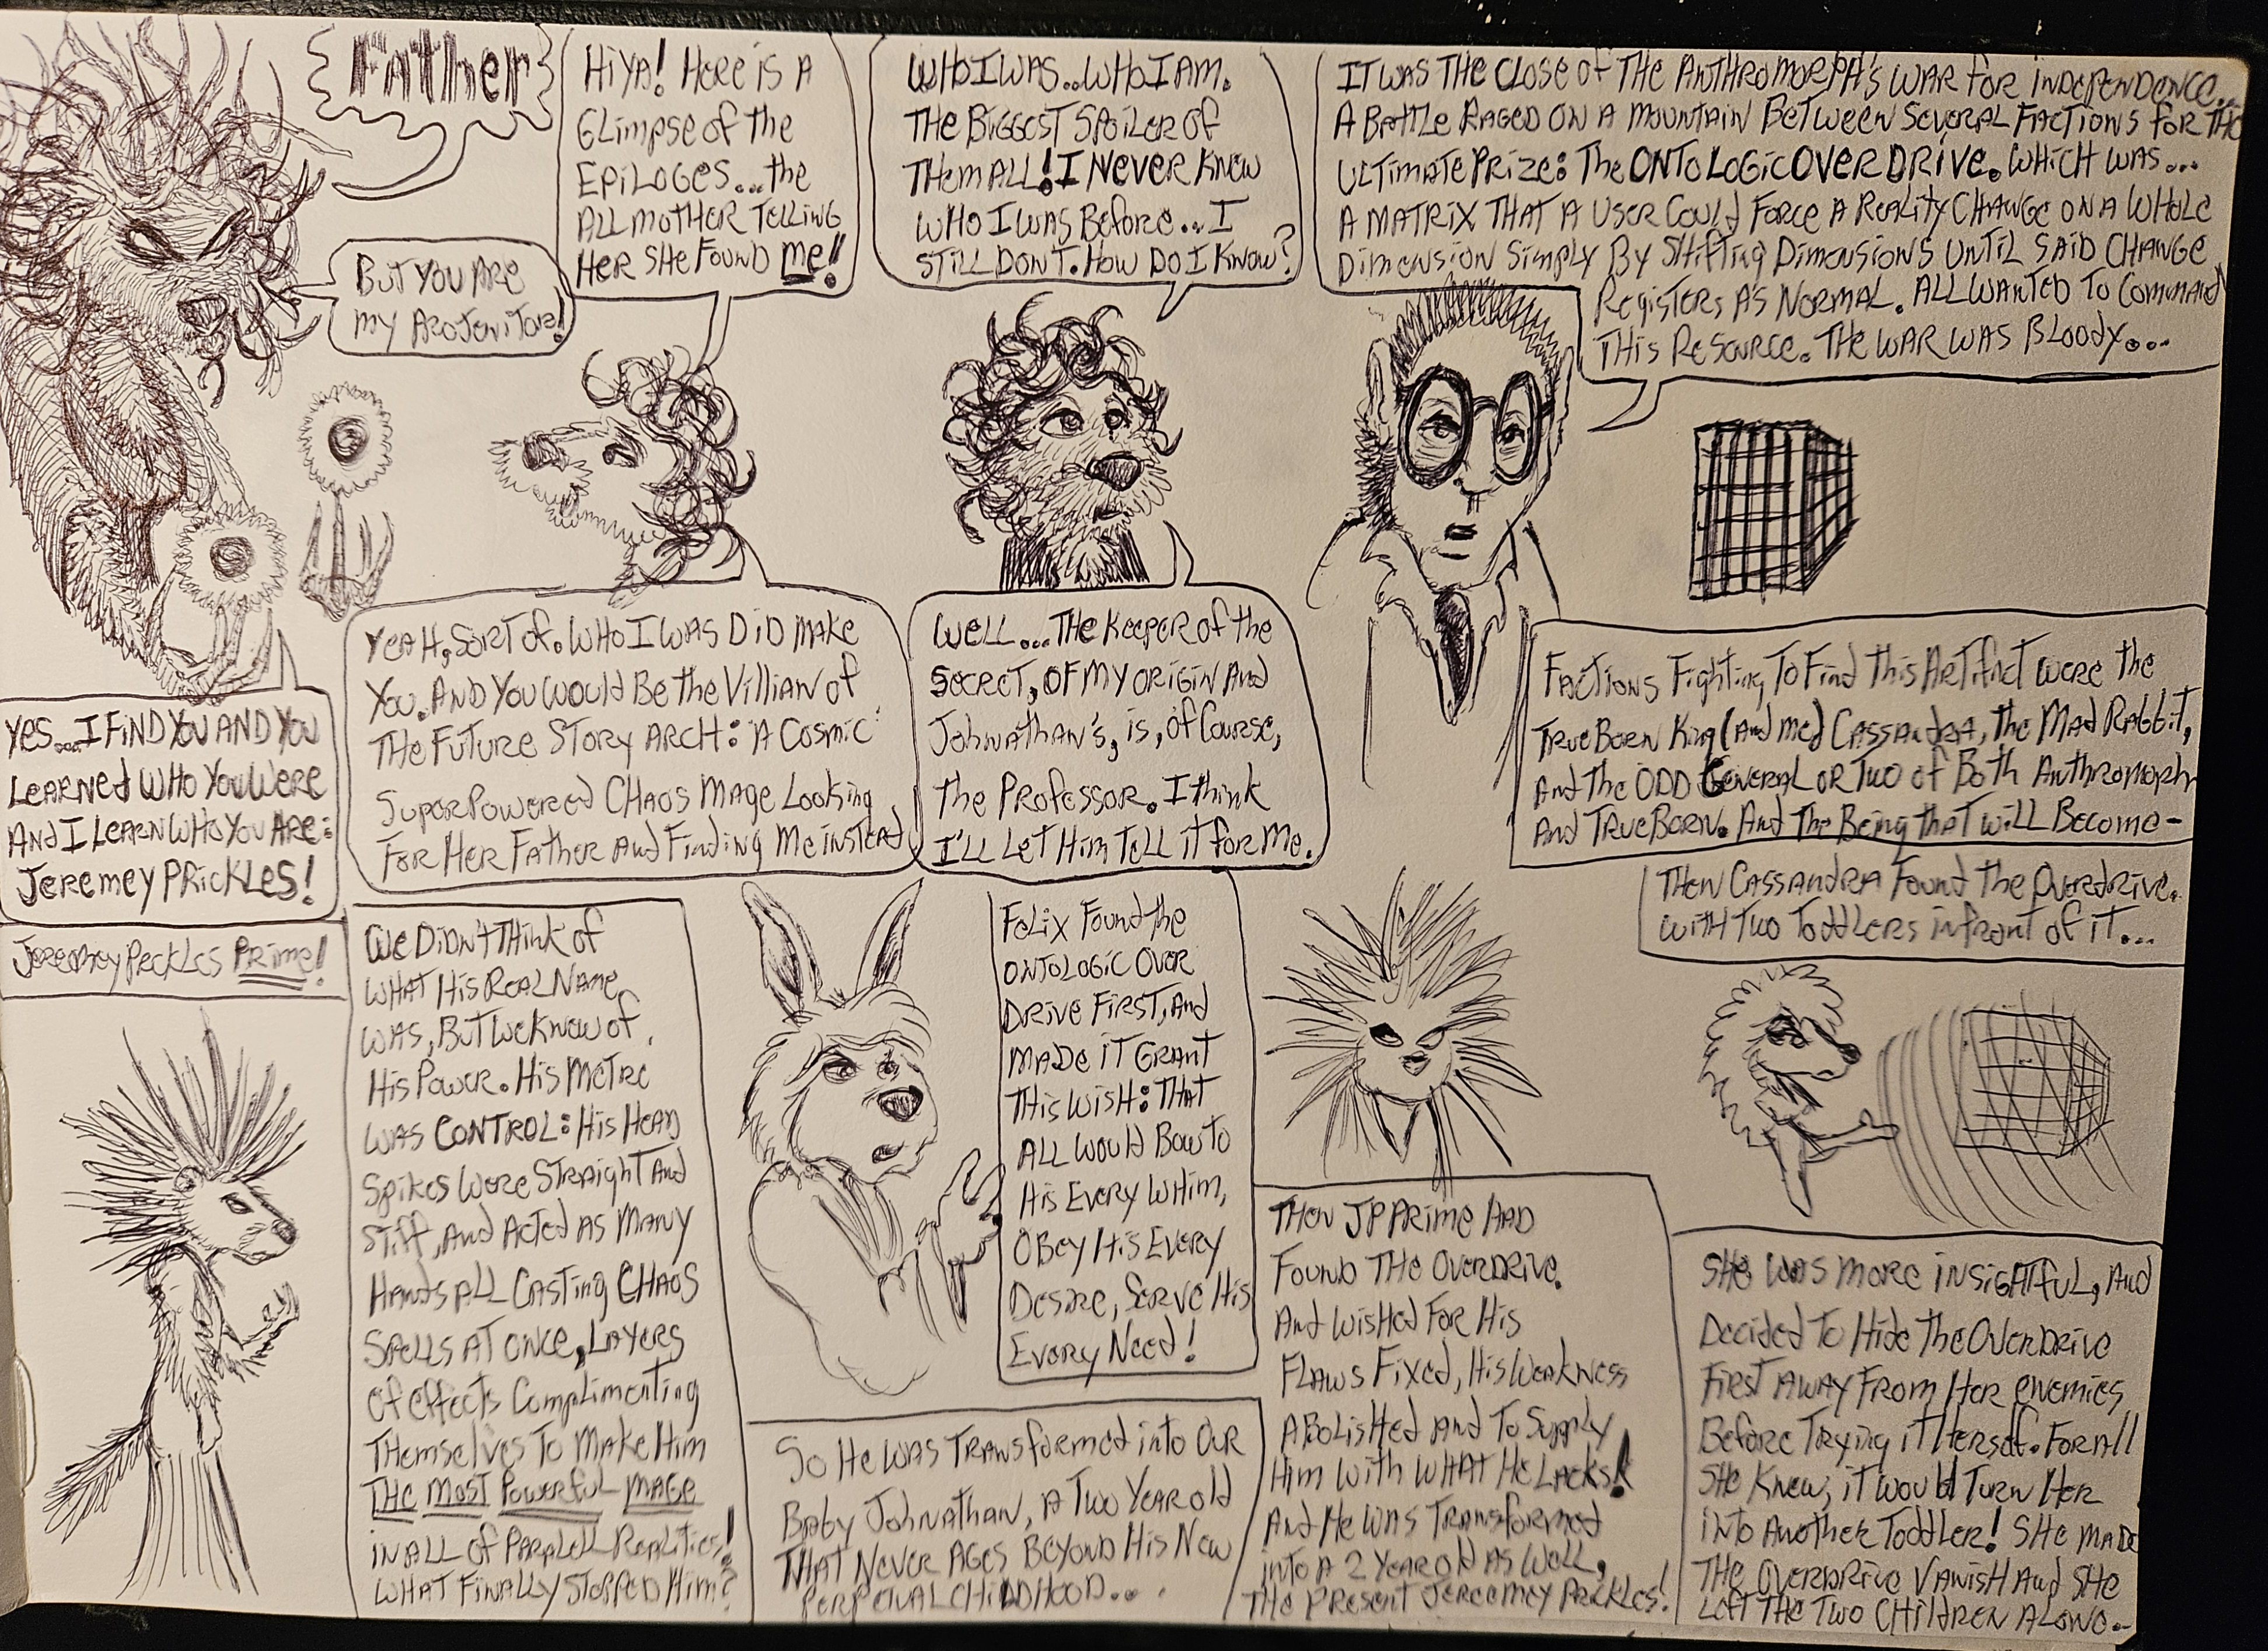 Father
But You Are
my Projenitor!
Yes....I Find You And You
Learned Who You Were
And I Learn Who You Are:
Jeremey Prickles!
Hiya! Here is A
Glimpse of the
Epiloges...the
All Mother Telling
Her She Found Me!!
Yeah, Sort of. Who I Was Did Make
You. And You Would Be the Villian of
The Future Story Arch: A Cosmic
Super Powered Chaos Mage Looking
For Her Father And Finding Me instead
Who I Was..Who I Am.
The Biggest Spoiler of
Them All! I Never Knew
Who I Was Before...I
Still Don't. How Do I Know?
Well...The Keeper of the
Secret, of My Origin And
Johnathan's, is, of Course,
the Professor. I think
I'll Let Him Tell it for Me.
It Was The Close of The Anthromorph's War for Independence...
A Battle Raged on A Mountain Between Several Factions for The
Ultimate Prize: The Ontologic Over Drive. Which Was...
A Matrix That A User Could Force A Reality Change on A Whole
Dimension Simply By Shifting Dimensions Until Said Change
Registers As Normal. All Wanted To Command
This Resource. The War Was Bloody...
Factions Fighting To Find This Artifact Were the
True Born King (And me) Cassandra, The Mad Rabbit,
And The Odd General or Two of Both Anthromorph
And True Born. And The Being that Will Become-
Jeremey Prckles Prime!
We Didn't Think of
What His Real Name
Was, But We Knew of
His Power. His Metre
Was Control: His Head
Spikes Were Straight And
Stiff, And Acted As Many
Hands All Casting Chaos
Spells At Once, Layers
of effects Complimenting
Themselves To Make Him
The Most Powerful Mage
in All of Paralell Realities!
What Finally Stopped Him?
Felix Found the
Ontologic Over
Drive First, And
Made it Grant
This Wish: That
All Would Bow to
His Every Whim,
Obey His Every
Desire, Serve His
Every Need!
So He Was Transformed into Our
Baby Johnathan, A Two Year old
That Never Ages Beyond His New
Perpetual Childhood...
Then JP Prime Had
Found The Overdrive.
And Wished For His
Flaws Fixed, His Weakness
Abolished And To Supply
Him With What He Lacks!
And He Was Transformed
into A 2 Year old As Well,
The Present Jereemey Prickles!
Then Cassandra Found The Overdrive.
With Two Toddlers in front of it...
She Was More insightful, And
Decided To Hide The Overdrive
First Away From Her enemies
Before Trying it Herself. For All
She Knew, it Would Turn Her
into Another Toddler! She Made
The Overdrive Vanish And She
Left The Two Children Alone..